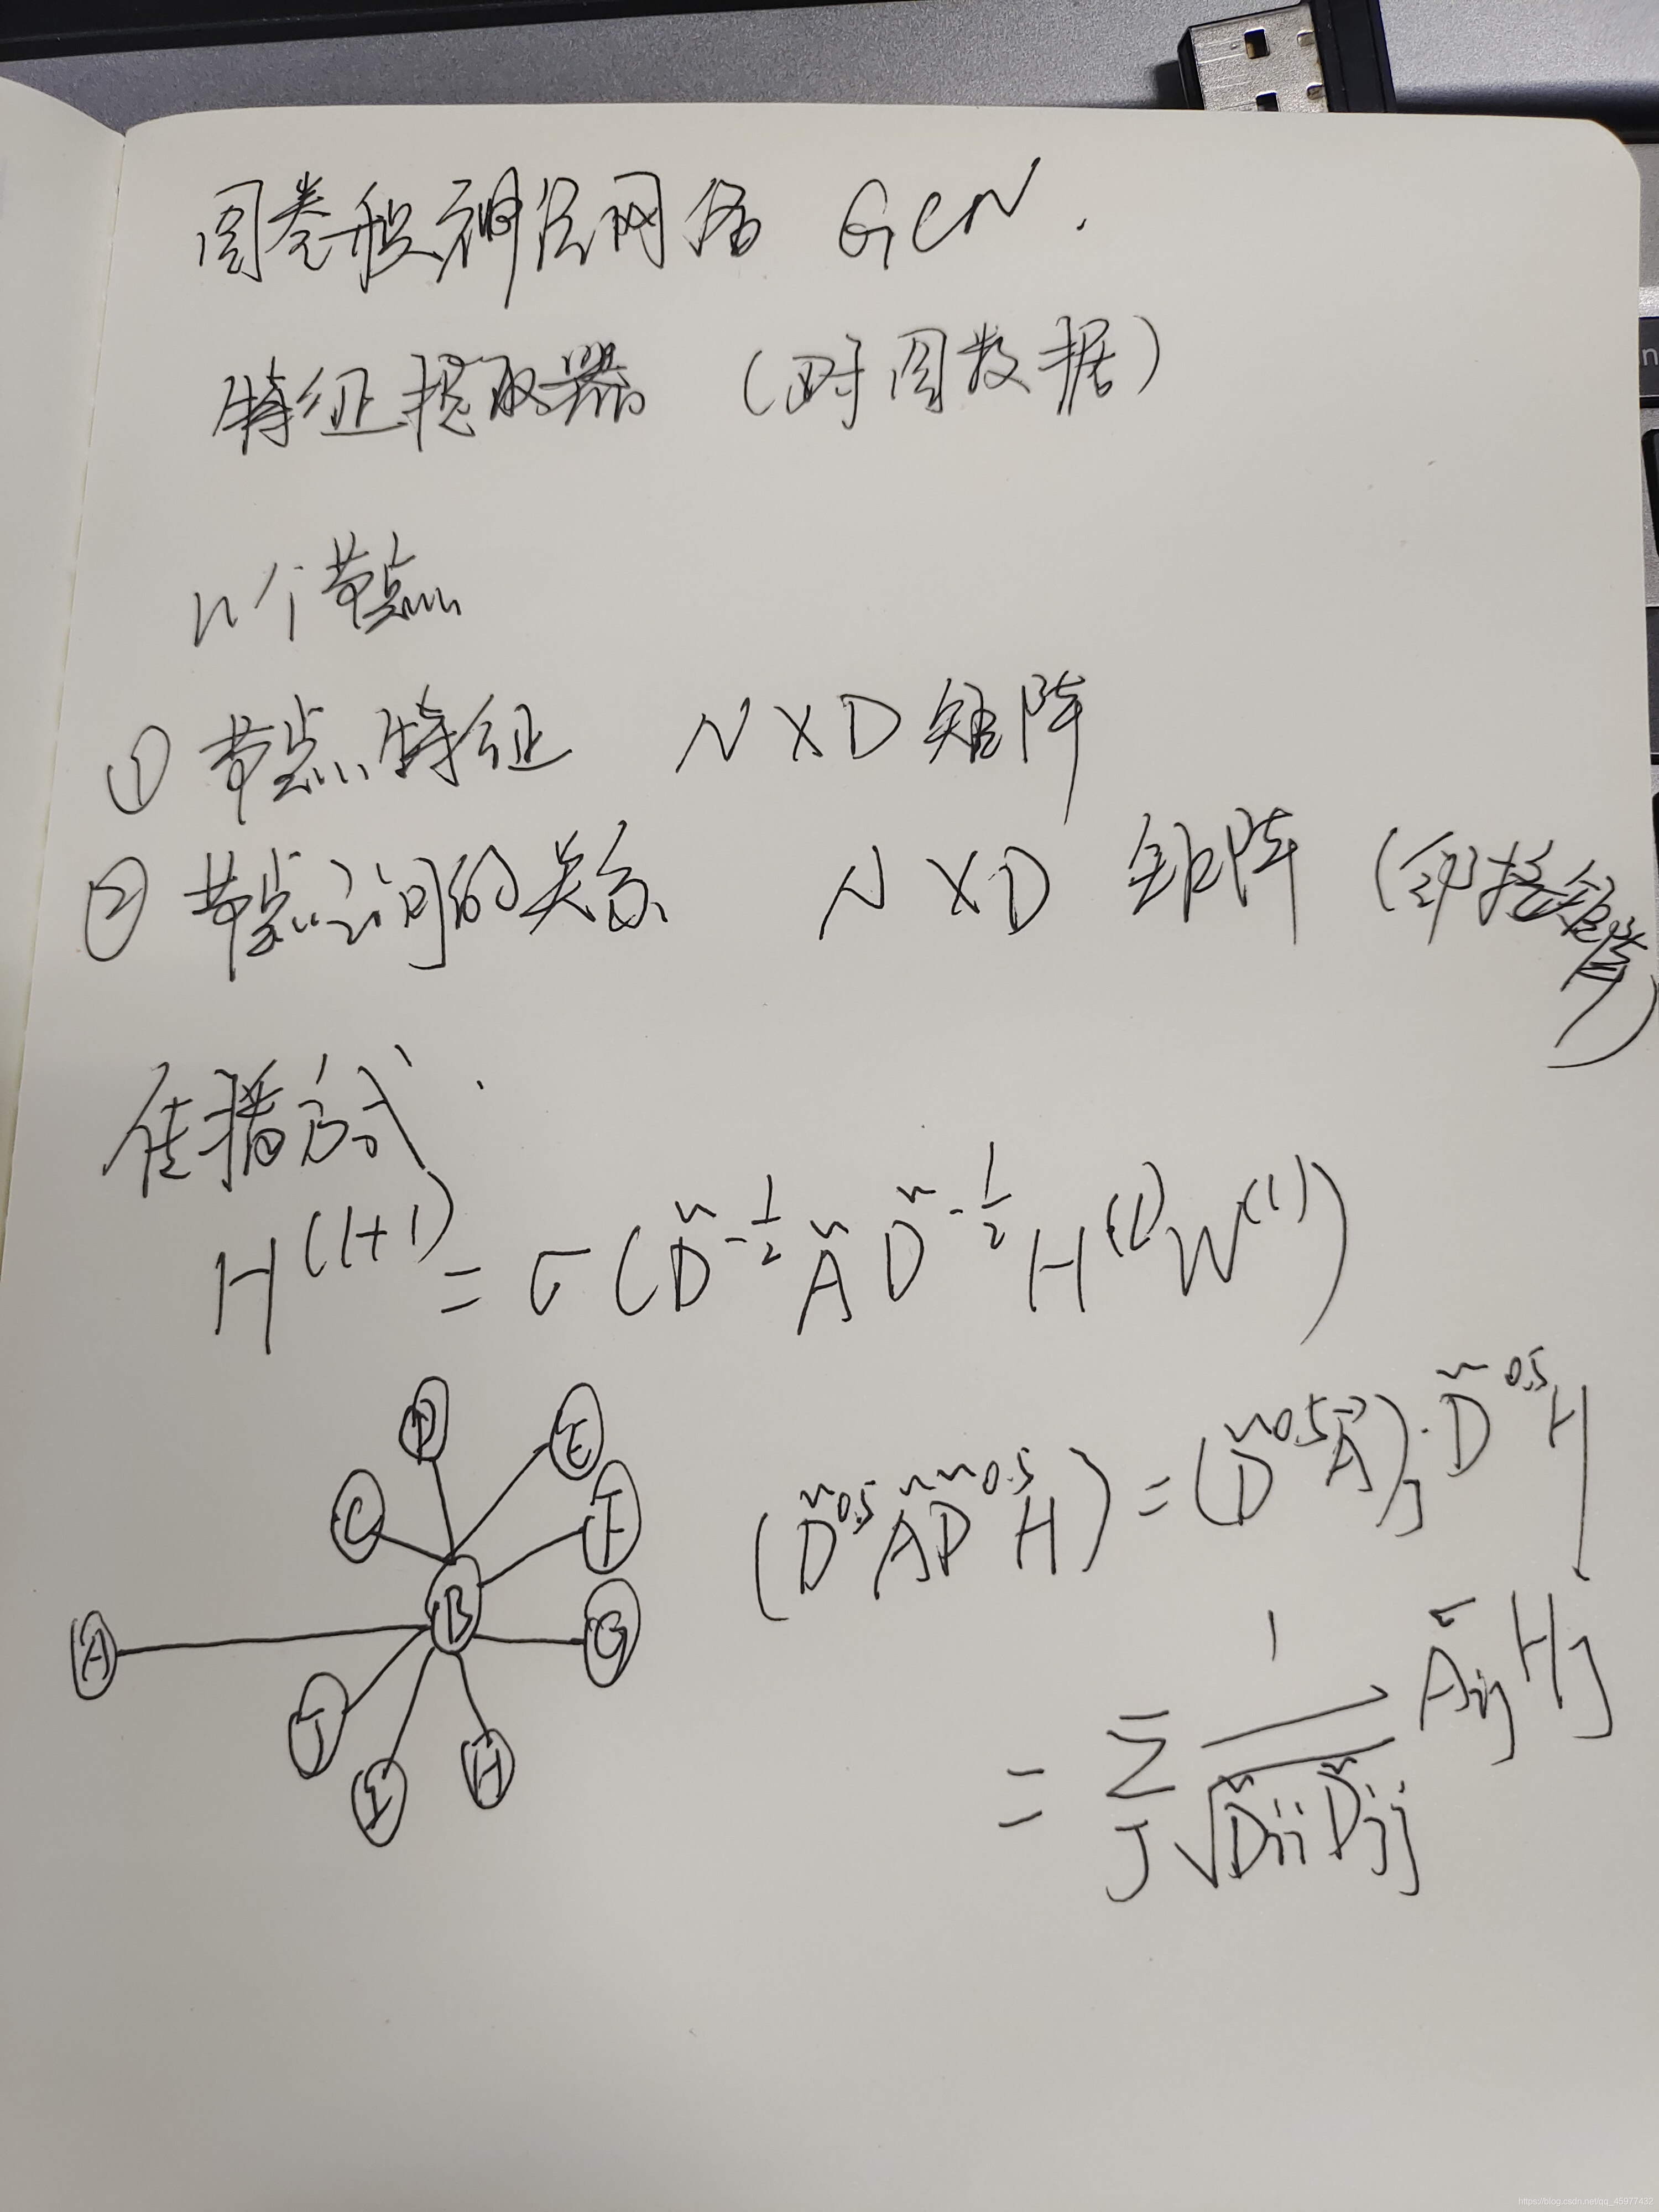 图卷积神经网络 GCN.
特征提取器 (对图数据)
n个节点
① 节点特征 N×D矩阵
② 节点之间的关系 N×D 矩阵 (邻接矩阵)
传播方式
H^(l+1) = σ(D̃^-1/2 Ã D̃^-1/2 H^(l) W^(l))
D
E
C
F
B
A
G
J
I
H
(D̃^0.5 Ã D̃^0.5 H) = (D̃^0.5 Ã)_J · D̃^0.5 H
= Σ_J 1/√(D̃ii D̃jj) Ãij Hj
https://blog.csdn.net/qq_45977432